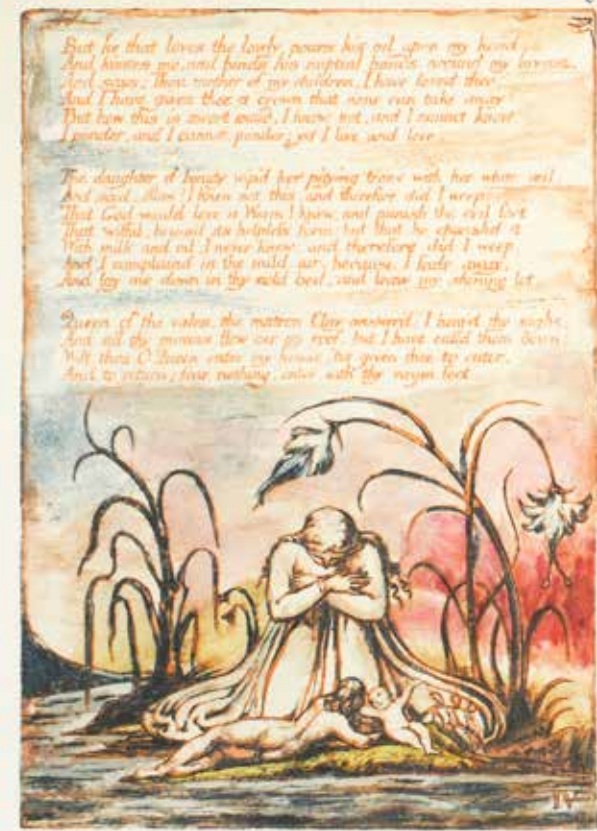 But he that loves the lowly, pours his oil upon my head.
And kisses me, and binds his nuptial bands around my breast,
And says; Thou mother of my children, I have loved thee.
And I have given thee a crown that none can take away
But how this is sweet maid, I know not, and I cannot know,
I ponder, and I cannot ponder; yet I live and love.
The daughter of beauty wip'd her pitying tears with her white veil,
And said, Alas! I knew not this, and therefore did I weep:
That God would love a Worm I knew, and punish the evil foot
That wilful, bruis'd its helpless form: but that he cherish'd it
With milk and oil, I never knew; and therefore did I weep,
And I complaind in the mild air, because I fade away,
And lay me down in thy cold bed, and leave my shining lot.
Queen of the vales, the matron Clay answerd; I heard thy sighs,
And all thy moans flew o'er my roof, but I have call'd them down:
Wilt thou O Queen enter my house, 'tis given thee to enter,
And to return; fear nothing, enter with thy virgin feet.
IV